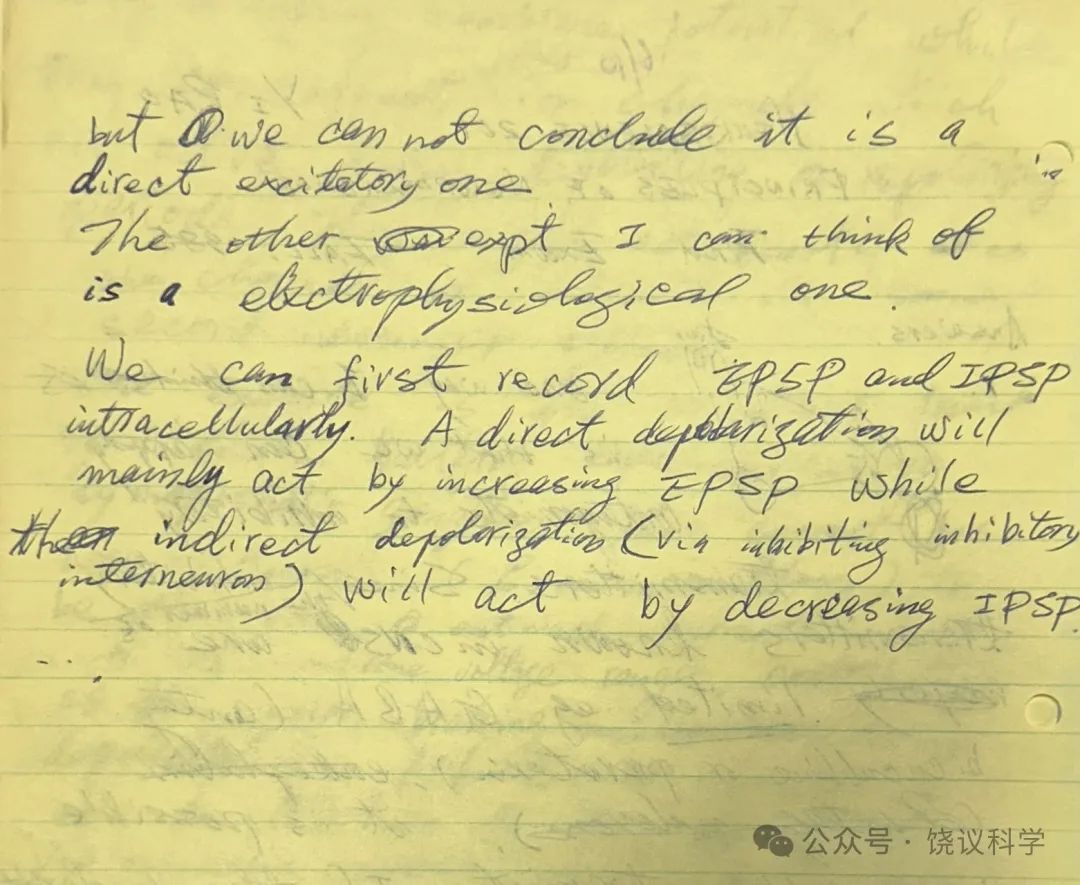 but we can not conclude it is a
direct excitatory one
The other expt. I can think of
is a electrophysiological one.
We can first record EPSP and IPSP
intracellularly. A direct depolarization will
mainly act by increasing EPSP while
indirect depolarization (via inhibiting inhibitory
interneurons) will act by decreasing IPSP.
公众号·饶议科学